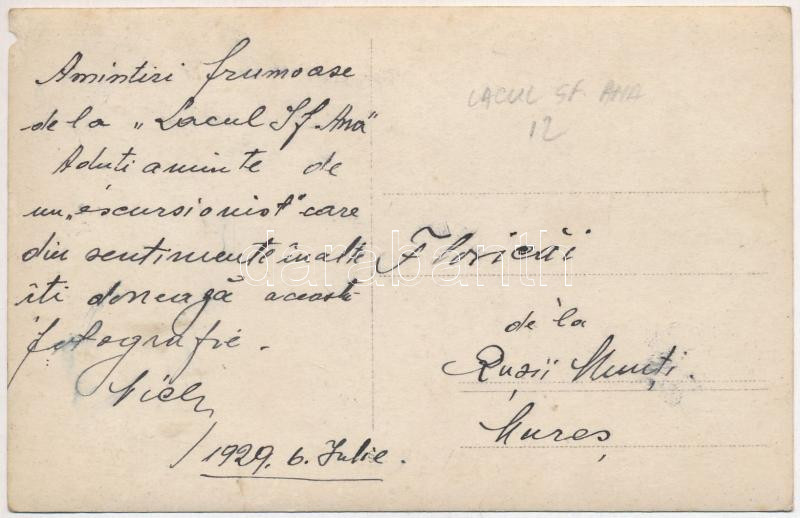 Amintiri frumoase
de la „Lacul Sf. Ana"
Aduti aminte de
un „escursionist" care
din sentimente înalte
îti doneagă aceasta
fotografie.
1929. 6. Iulie.
LACUL SF. ANA
12
Floricăi
de la
Rușii Munți.
Mureș
darabanth